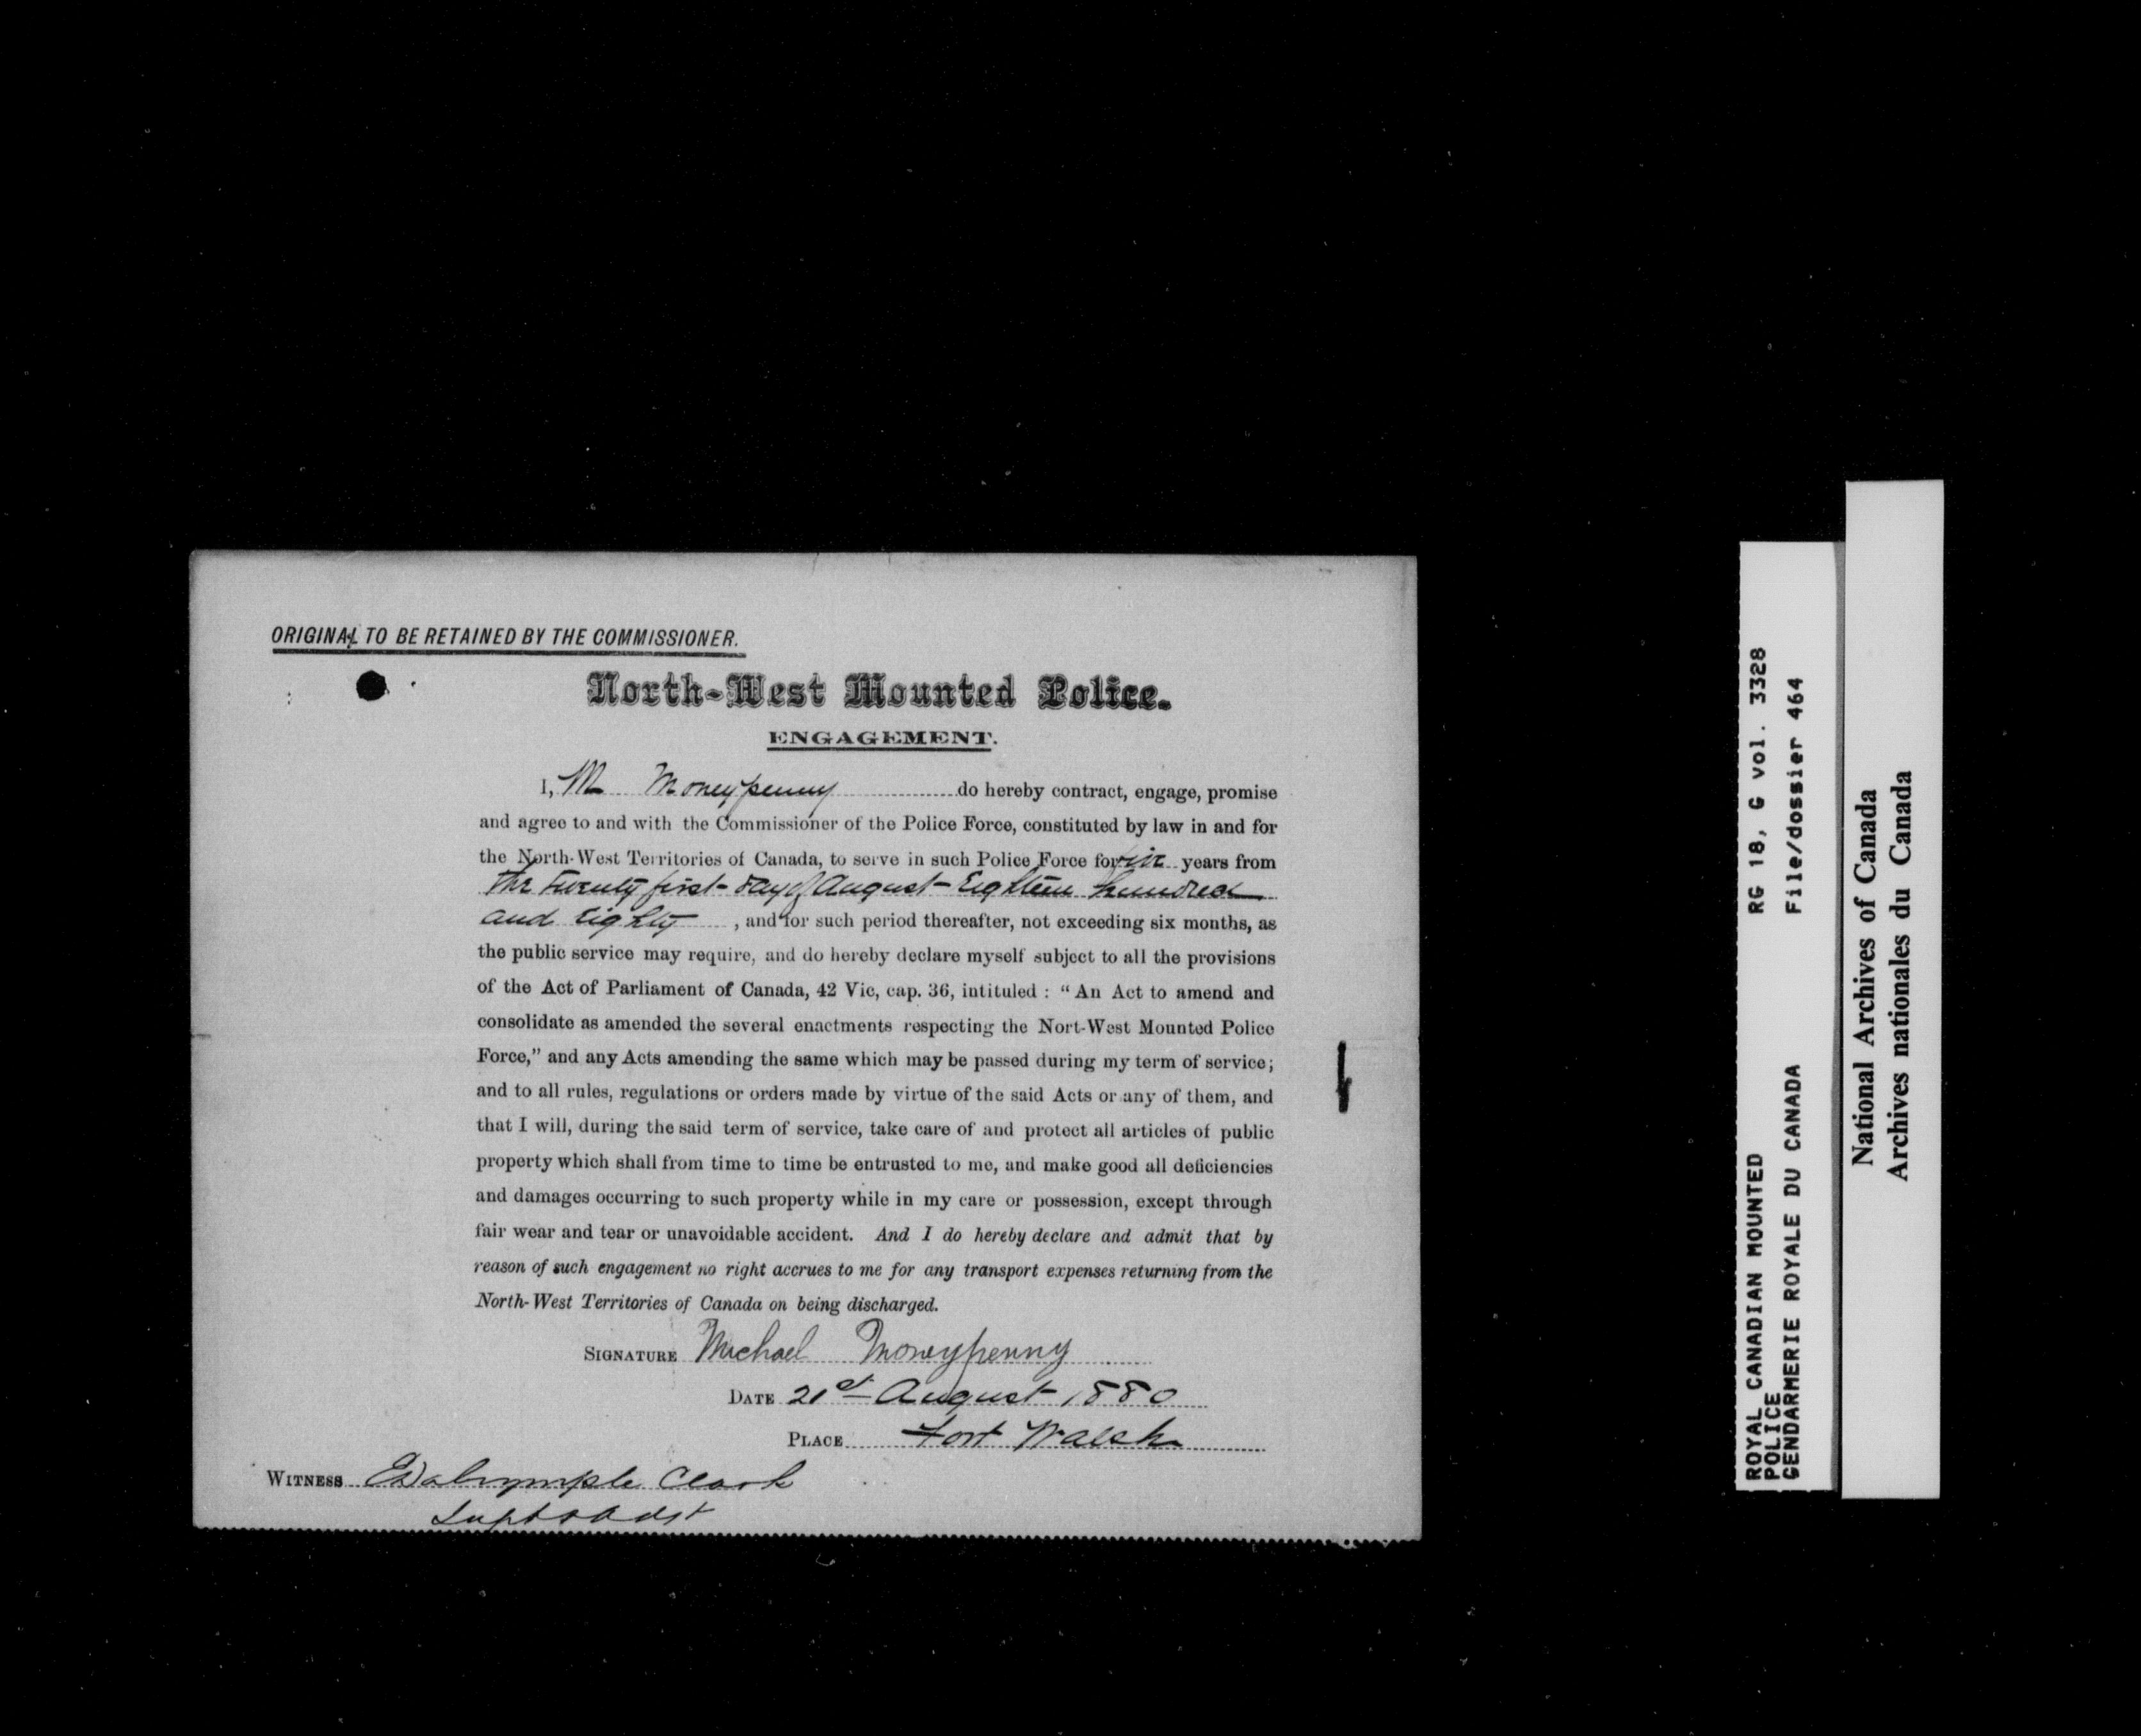 ORIGINAL TO BE RETAINED BY THE COMMISSIONER.
North-West Mounted Police.
ENGAGEMENT.
I, M Moneypenny do hereby contract, engage, promise
and agree to and with the Commissioner of the Police Force, constituted by law in and for
the North-West Territories of Canada, to serve in such Police Force for six years from
the twenty first day of August Eighteen hundred
and Eighty , and for such period thereafter, not exceeding six months, as
the public service may require, and do hereby declare myself subject to all the provisions
of the Act of Parliament of Canada, 42 Vic, cap. 36, intituled : “An Act to amend and
consolidate as amended the several enactments respecting the Nort-West Mounted Police
Force,” and any Acts amending the same which may be passed during my term of service;
and to all rules, regulations or orders made by virtue of the said Acts or any of them, and
that I will, during the said term of service, take care of and protect all articles of public
property which shall from time to time be entrusted to me, and make good all deficiencies
and damages occurring to such property while in my care or possession, except through
fair wear and tear or unavoidable accident. And I do hereby declare and admit that by
reason of such engagement no right accrues to me for any transport expenses returning from the
North-West Territories of Canada on being discharged.
SIGNATURE Michael Moneypenny
DATE 21st August 1880
PLACE Fort Walsh
WITNESS E Dalrymple Clark
Supt & Adjt
ROYAL CANADIAN MOUNTED RG 18, G vol. 3328
POLICE
GENDARMERIE ROYALE DU CANADA File/dossier 464
National Archives of Canada
Archives nationales du Canada